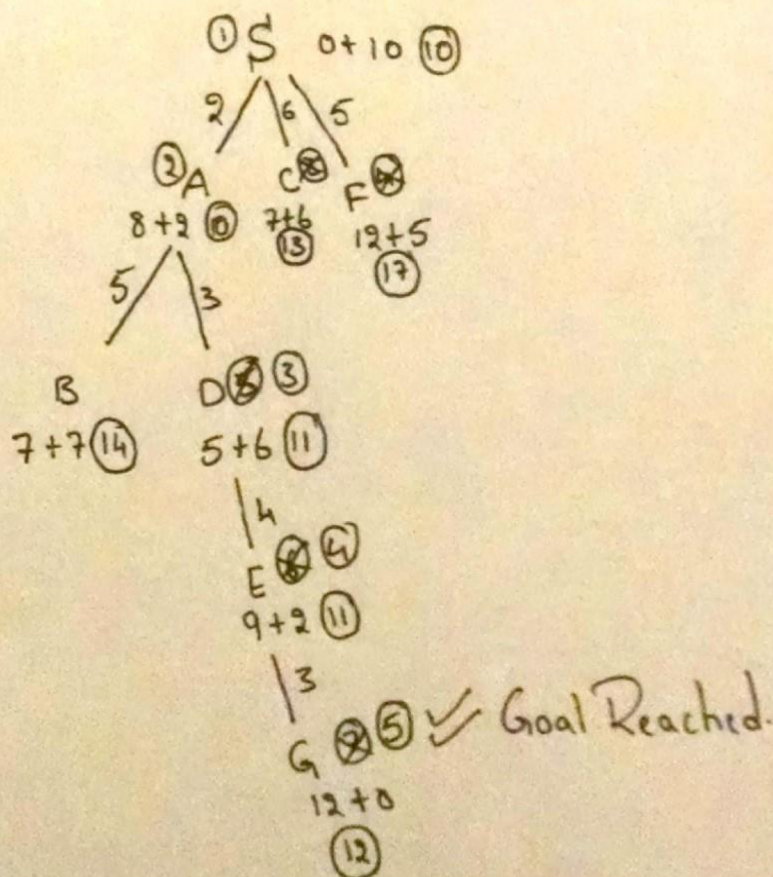 ① S 0+10 ⑩
2 6 5
② A C F
8+2 7+6 12+5
⑬ ⑰
5 3
B D ③
7+7 ⑭ 5+6 ⑪
4
E ④
9+2 ⑪
3
G ⑤ ✓ Goal Reached.
12+0
⑫